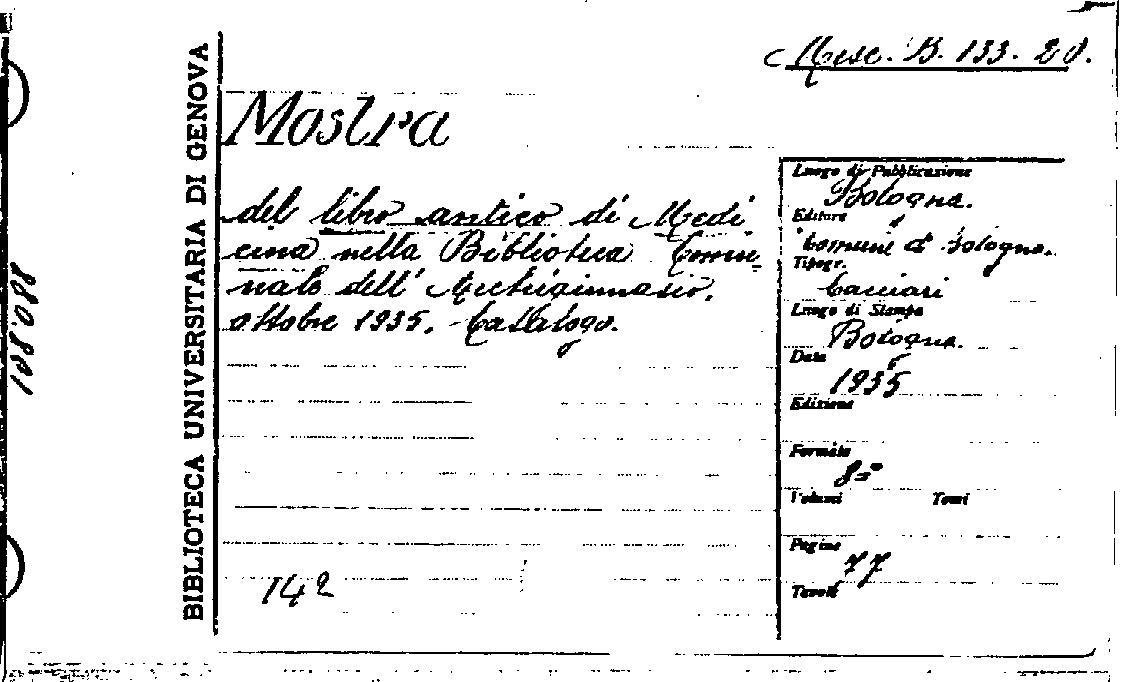 Misc. B. 133. 20.
BIBLIOTECA UNIVERSITARIA DI GENOVA
Mostra
del libro antico di Medi
cina nella Biblioteca Comu
nale dell'Archiginnasio.
ottobre 1935. Catalogo.
142
Luogo di Pubblicazione
Bologna.
Editore
Comune di Bologna.
Tipogr.
Cacciari
Luogo di Stampa
Bologna.
Data
1935
Edizione
Formato
8º
Volumi Tomi
Pagine
77
Tavole